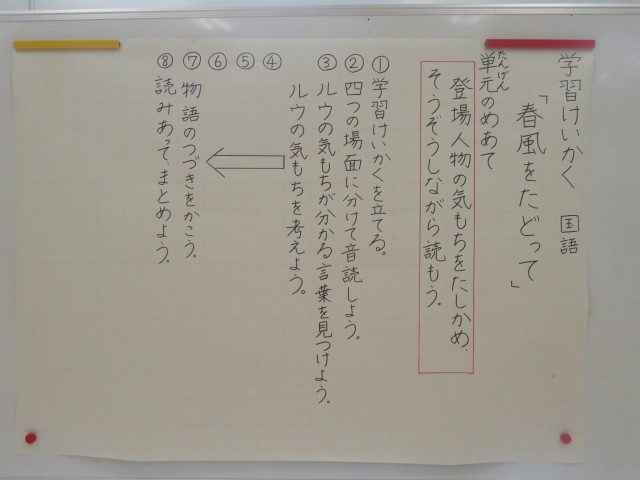 学習けいかく 国語
「春風をたどって」
たんげん
単元のめあて
登場人物の気もちをたしかめ、
そうぞうしながら読もう。
①学習けいかくを立てる。
②四つの場面に分けて音読しよう。
③ルウの気もちが分かる言葉を見つけよう。
ルウの気もちを考えよう。
④
⑤
⑥
⑦物語のつづきをかこう。
⑧読みあって、まとめよう。